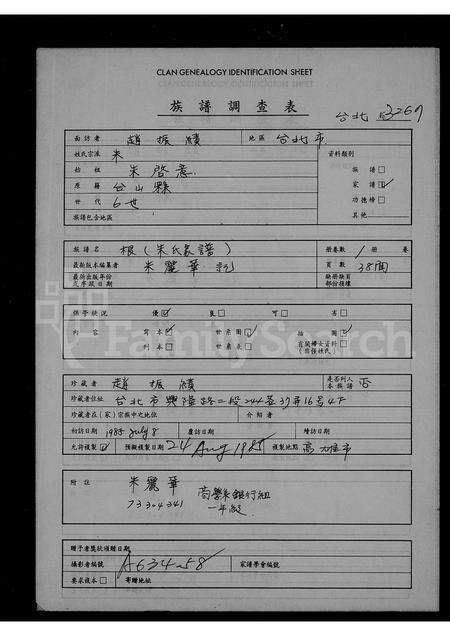 CLAN GENEALOGY IDENTIFICATION SHEET
族譜調查表
台北 3267
面訪者 趙振績 地區 台北市
姓氏宗派 朱 資料類別
始祖 朱啓意 族譜□
原籍 台山縣 家譜☑
世代 6世 功德榜□
族譜包含地區 其他
族譜名 根(朱氏家譜) 冊卷數 1 冊 卷
最新版本編纂者 朱麗華 記 頁數 38
最新出版年份及序跋日期 缺冊缺頁部份損壞
保學狀況 優☑ 良□ 可□ 劣□
內容 寫本☑ 世系圖☑ 插圖☑
刊本□ 世系表□
FamilySearch
珍藏者 趙振績 是否列入本族譜 否
珍藏者住址 台北市興隆路二段244巷37弄16号4F
珍藏者在(家)宗族中之地位 介紹者
初訪日期 1985 July 8 覆訪日期 續訪日期
允許複製☑ 預擬複製日期 24 Aug 1985 複製地點 高雄市
附註 朱麗華
73324341
一年級
贈予者獎狀領贈日期
攝影者編號 A634-58 家譜學會編號
要求複本□ 寄贈地址